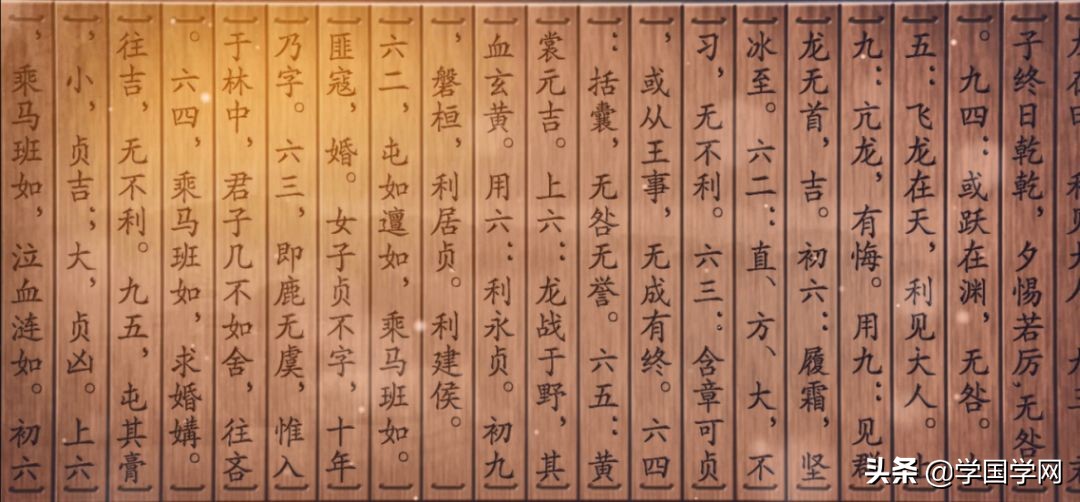 在田，利见大人。九三
子终日乾乾，夕惕若厉，无咎
。九四：或跃在渊，无咎。
五：飞龙在天，利见大人。
九：亢龙，有悔。用九：见群
龙无首，吉。初六：履霜，坚
冰至。六二：直、方、大，不
习，无不利。六三：含章可贞
，或从王事，无成有终。六四
：括囊，无咎无誉。六五：黄
裳元吉。上六：龙战于野，其
血玄黄。用六：利永贞。初九
，磐桓，利居贞。利建侯。
六二，屯如邅如，乘马班如。
匪寇，婚。女子贞不字，十年
乃字。六三，即鹿无虞，惟入
于林中，君子几不如舍，往吝
。六四，乘马班如，求婚媾。
往吉，无不利。九五，屯其膏
，小，贞吉；大，贞凶。上六
，乘马班如，泣血涟如。初六
头条 @学国学网